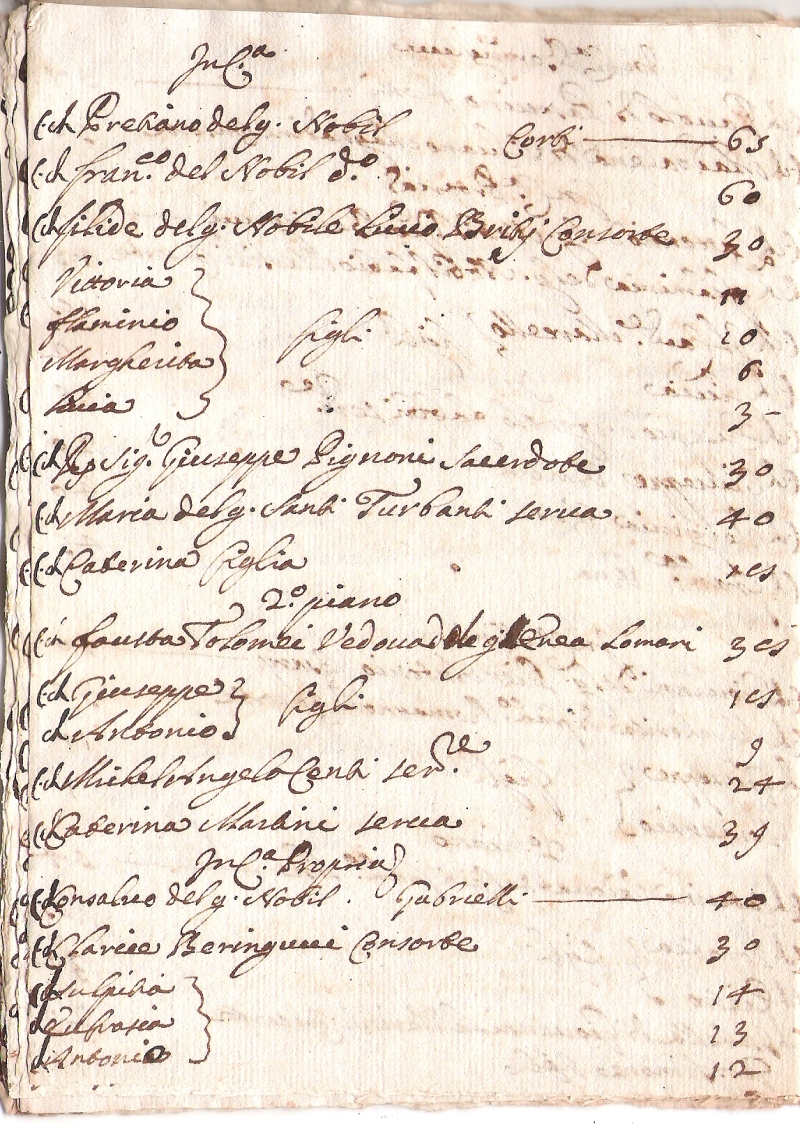 In C.a
C. ch Preziano del q. Nobil Corti 65
C. ch Fran.co del Nobil d.o 60
C. ch filide del q. Nobile Lucio Consorte 30
Vittoria 11
flaminio figli 10
Margherita 6
Lucia 3
C. ch Sig.r Giuseppe Pignoni Sacerdote 30
C. ch Maria del q. Santi Turbanti serua 40
C. ch Caterina figlia
2.o piano
C. ch fausta Tolomei Vedoua del q. Enea Lomari 36
C. ch Giuseppe figli 16
ch Antonio 9
C. ch Michel Angelo Centi ser.re 24
C. Caterina Martini serua 39
In C.a Propria
C. ch Consaluo del q. Nobil. Gabrielli 40
C. ch Clarice Beringucci Consorte 30
Sulpitia 14
Eufrasia 13
Antonio 12